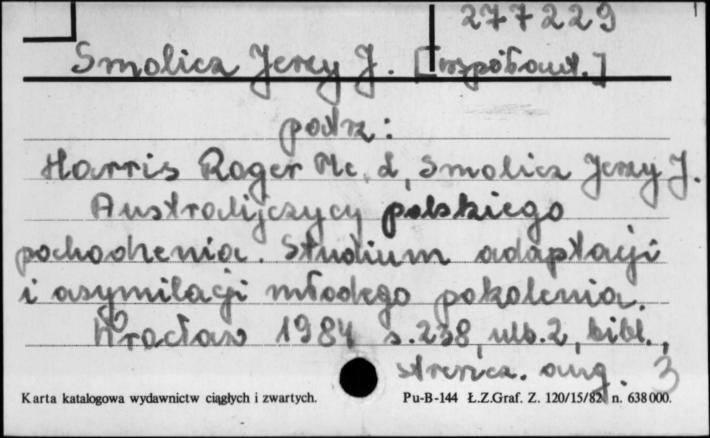 277229
Smolicz Jerzy J. [współaut.]
patrz:
Harris Roger Mc. L, Smolicz Jerzy J.
Australijczycy polskiego
pochodzenia. Studium adaptacji
i asymilacji młodego pokolenia.
Wrocław 1984 s.238, nlb.2, bibl.,
streszcz. ang. 3
Karta katalogowa wydawnictw ciągłych i zwartych. Pu-B-144 Ł.Z.Graf. Z. 120/15/82 n. 638000.